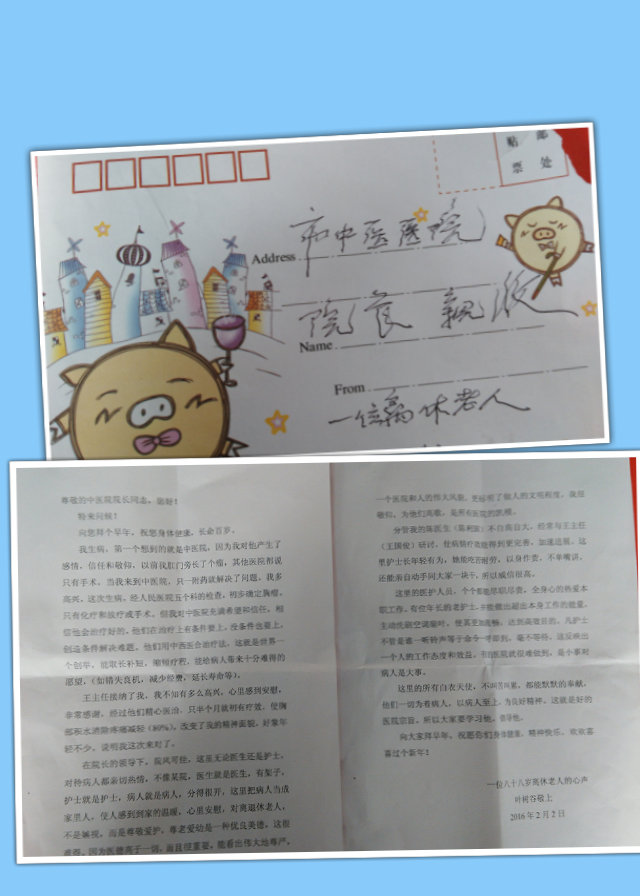 贴 邮
票 处
Address 市中医医院
Name 院长 亲收
From
一位离休老人
尊敬的中医院院长同志，您好！
特来问候！
向您拜个早年，祝您身体健康，长命百岁。
我生病，第一个想到的就是中医院，因为我对他产生了
感情，信任和敬仰，以前我肛门旁长了个瘤，其他医院都说
只有手术。当我来到中医院，只一附药就解决了问题，我多
高兴，这次生病，经人民医院五个科的检查，初步确定胸瘤，
只有化疗和放疗或手术。但我对中医院充满希望和信任，相
信他会治疗好的，他们在治疗上有条件要上，没条件也要上，
创造条件解决难题。他们用中西医合治疗法，这就是世界一
个创举，能取长补短，缩短疗程，能给病人带来十分难得的
愿望，（如错失良机，减少经费，延长寿命等）。
王主任接纳了我，我不知有多么高兴，心里感到安慰，
非常感谢，经过他们精心医治，只半个月就初有疗效，使胸
部积水消除疼痛减轻（80%），改变了我的精神面貌，好象年
轻不少，说明我这次来对了。
在院长的领导下，院风可佳，这里无论医生还是护士，
对待病人都亲切热情，不像某院，医生就是医生，有架子，
护士就是护士，病人就是病人，分得很开，这里把病人当成
家里人，使人感到到家的温暖，心里安慰，对离退休老人，
不是躲视，而是尊敬爱护，尊老爱幼是一种优良美德，这很
难得。因为医德高于一切，而且很重要，能看出伟大地尊严，
一个医院和人的伟大风貌，更标明了做人的文明程度，我很
敬仰，为他们高歌，是所有医院的凯模。
分管我的陈医生（陈利洪）不自高自大，经常与王主任
（王国俊）研讨，使病情疗效能得到更完善，加速进展。这
里护士长年轻有为，她能吃苦耐劳，以身作责，不单嘴讲，
还能亲自动手同大家一块干，所以威信很高。
这里的医护人员，个个都能尽职尽责，全身心的热爱本
职工作。有位年长的老护士，并能做出超出本身工作的能量，
主动洗刷空调罩叶，使其更加流畅，达到高效目的。凡护士
不管是谁一听铃声等于命令一寻即到，毫不等待，这反映出
一个人的工作态度和效益，有的医院就很难做到，是小事对
病人是大事。
这里的所有白衣天使，不叫苦叫累，都能默默的奉献，
他们一切为着病人，以病人至上，为良好精神。这就是好的
医院宗旨，所以大家要学习他，倡导他。
向大家拜早年，祝愿你们身体健康，精神快乐，欢欢喜
喜过个新年！
一位八十八岁离休老人的心声
叶树谷敬上
2016 年 2 月 2 日